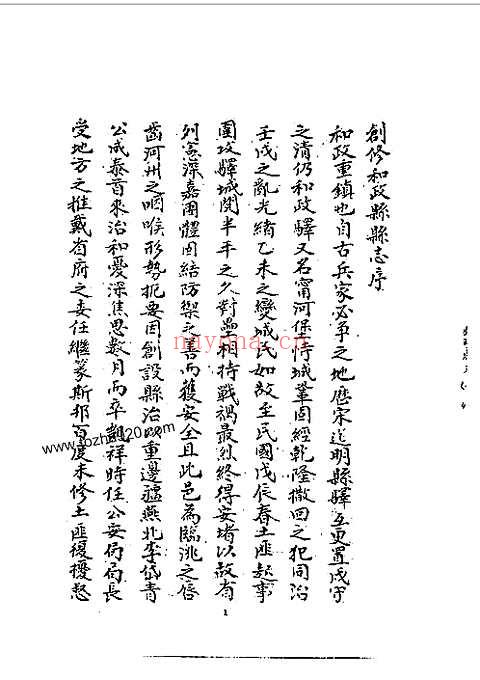 創修和政縣縣志序
和政重鎮也自古兵家必爭之地歷宋迄明縣驛互更置戍守
之清仍和政驛又名甯河保障城鞏固經乾隆撒回之犯同治
壬戌之亂光緒乙未之變城民如故至民國戊辰春土匪起事
圍攻驛城閱半年之久對壘相持戰禍最烈終得安堵以故省
列憲深嘉團體固結防禦之善而獲安全且此邑為臨洮之唇
齒河州之咽喉形勢扼要因創設縣治以重邊疆燕北李岱青
公成泰首來治和憂深焦思數月而卒觀祥時任公安局局長
受地方之推戴省府之委任繼篆斯邦百度未修土匪復擾愁
1
www.fozhu920.com